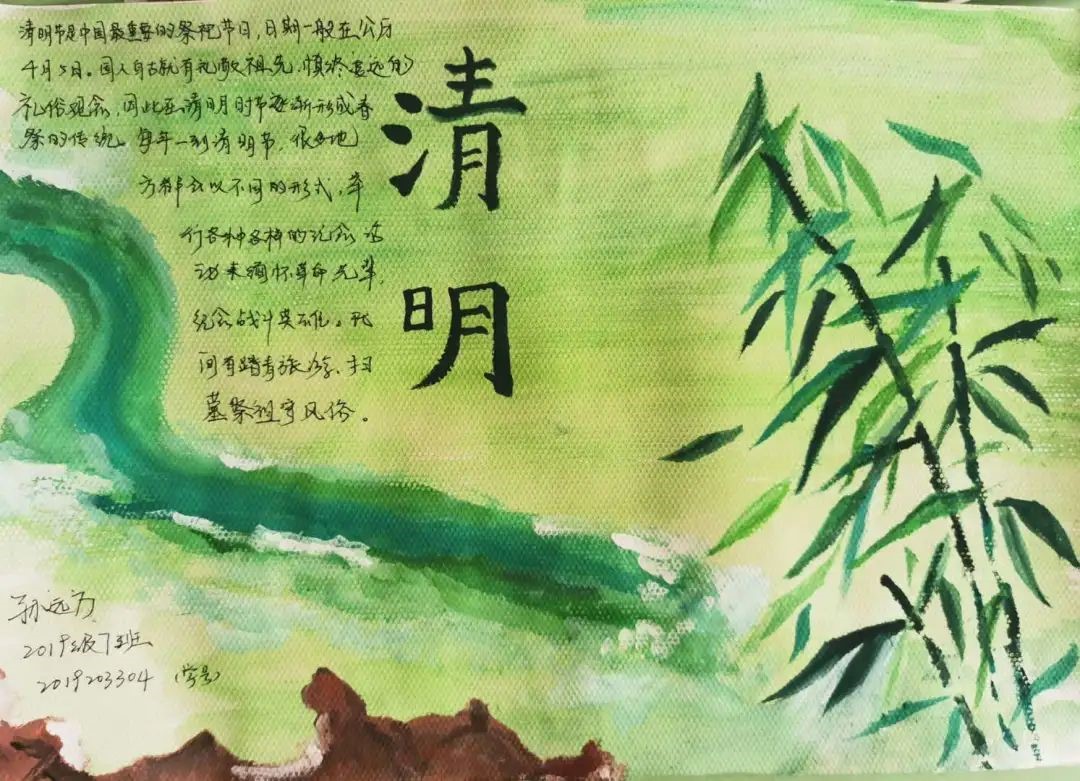 清明节是中国最重要的祭祀节日,日期一般在公历
4月5日。国人自古就有礼敬祖先,慎终追远的
礼俗观念,因此在清明时节逐渐形成春
祭的传统。每年一到清明节,很多地
方都会以不同的形式,举
行各种各样的纪念活
动来缅怀革命先辈,
纪念战斗英雄。民
间有踏青旅游、扫
墓祭祖等风俗。
清
明
孙远方
2019级7班
2019203304 (学号)